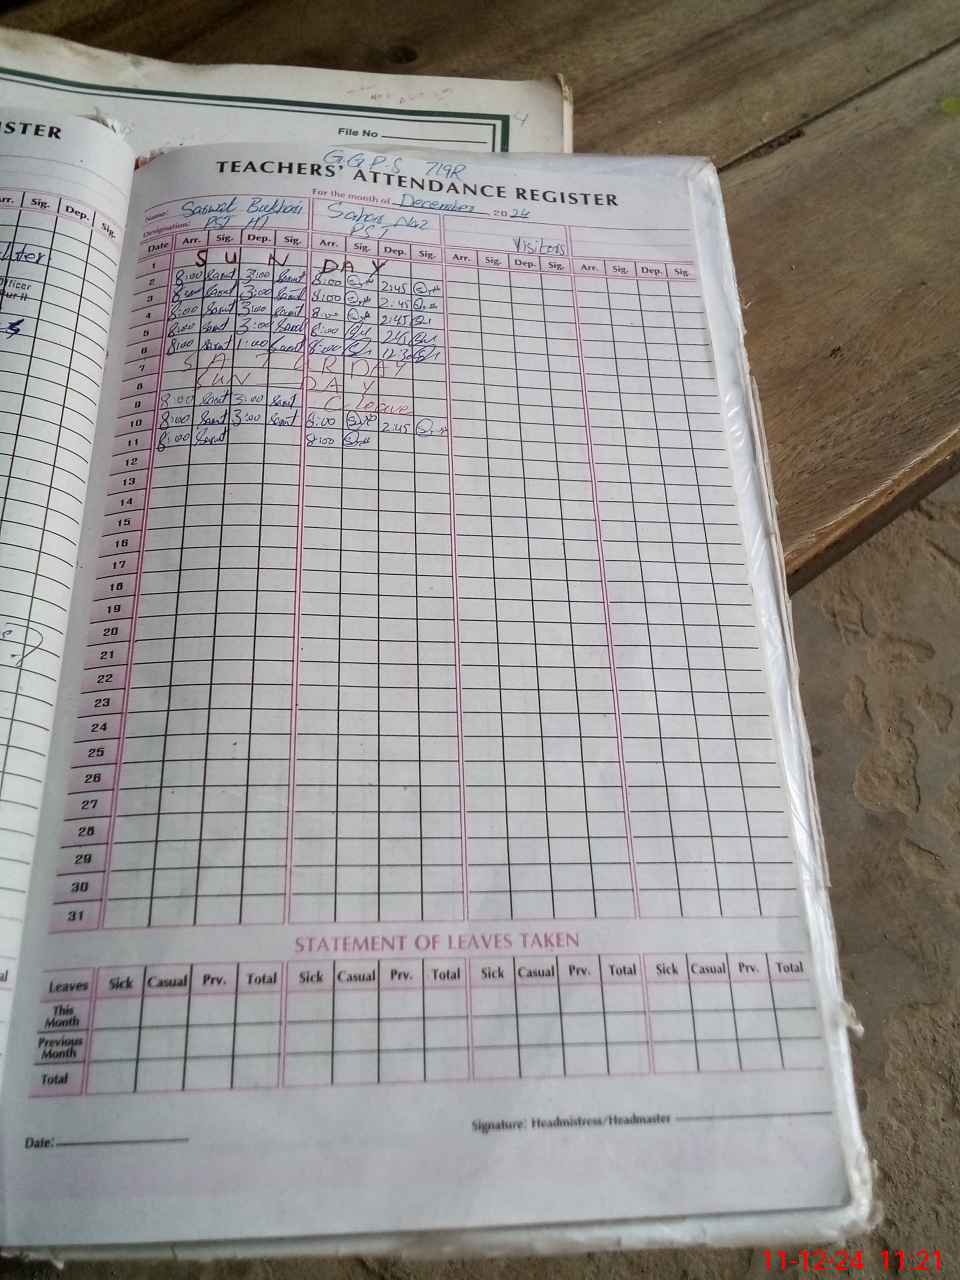 File No
ISTER
Arr. Sig. Dep. Sig.
G.G.P.S 719R
TEACHERS' ATTENDANCE REGISTER
For the month of December 2024
Name:
Designation: PST HT PST Visitors
Date Arr. Sig. Dep. Sig. Arr. Sig. Dep. Sig. Arr. Sig. Dep. Sig. Arr. Sig. Dep. Sig.
1 S U N DAY
2 8:00 3:00 8:00 2:45
3 8:00 3:00 8:00 2:45
4 8:00 3:00 8:00 2:45
5 8:00 3:00 8:00 2:45
6 8:00 1:00 8:00 12:30
7 S A T U R DAY
8 SUN DAY
9 8:00 3:00 C-leave
10 8:00 3:00 8:00 2:45
11 8:00 8:00
12
13
14
15
16
17
18
19
20
21
22
23
24
25
26
27
28
29
30
31
STATEMENT OF LEAVES TAKEN
Leaves Sick Casual Prv. Total Sick Casual Prv. Total Sick Casual Prv. Total Sick Casual Prv. Total
This Month
Previous Month
Total
Date:
Signature: Headmistress/Headmaster
11-12-24 11:21